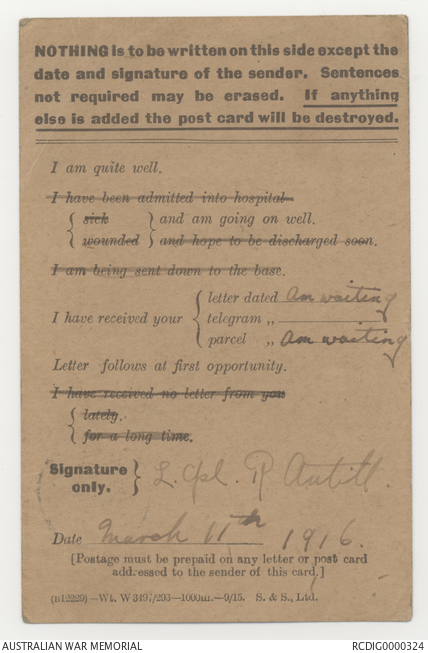 NOTHING is to be written on this side except the
date and signature of the sender. Sentences
not required may be erased. If anything
else is added the post card will be destroyed.
I am quite well.
I have been admitted into hospital
sick and am going on well.
wounded and hope to be discharged soon.
I am being sent down to the base.
letter dated Am waiting
I have received your telegram „
parcel „ Am waiting
Letter follows at first opportunity.
I have received no letter from you
lately.
for a long time.
Signature only. L. Cpl. R Antill.
Date March 11th 1916.
[Postage must be prepaid on any letter or post card
addressed to the sender of this card.]
(B12229)—Wt. W3497/293—1000m.—9/15. S. & S., Ltd.
AUSTRALIAN WAR MEMORIAL RCDIG0000324